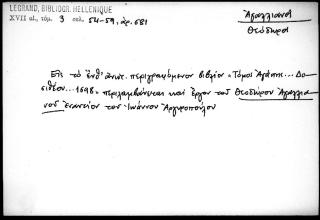 LEGRAND, BIBLIOGR. HELLENIQUE
XVII αἰ., τόμ. 3 σελ. 54-59, ἀρ. 681
Ἀγαλλιανοῦ
Θεοδώρου
Εἰς τὸ ἔνθ' ἀνωτ. περιγραφόμενον βιβλίον «Τόμος Ἀγάπης... Δο-
σιθέου... 1698» περιλαμβάνεται καὶ ἔργον τοῦ Θεοδώρου Ἀγαλλια-
νοῦ ἐναντίον τοῦ Ἰωάννου Ἀργυροπούλου